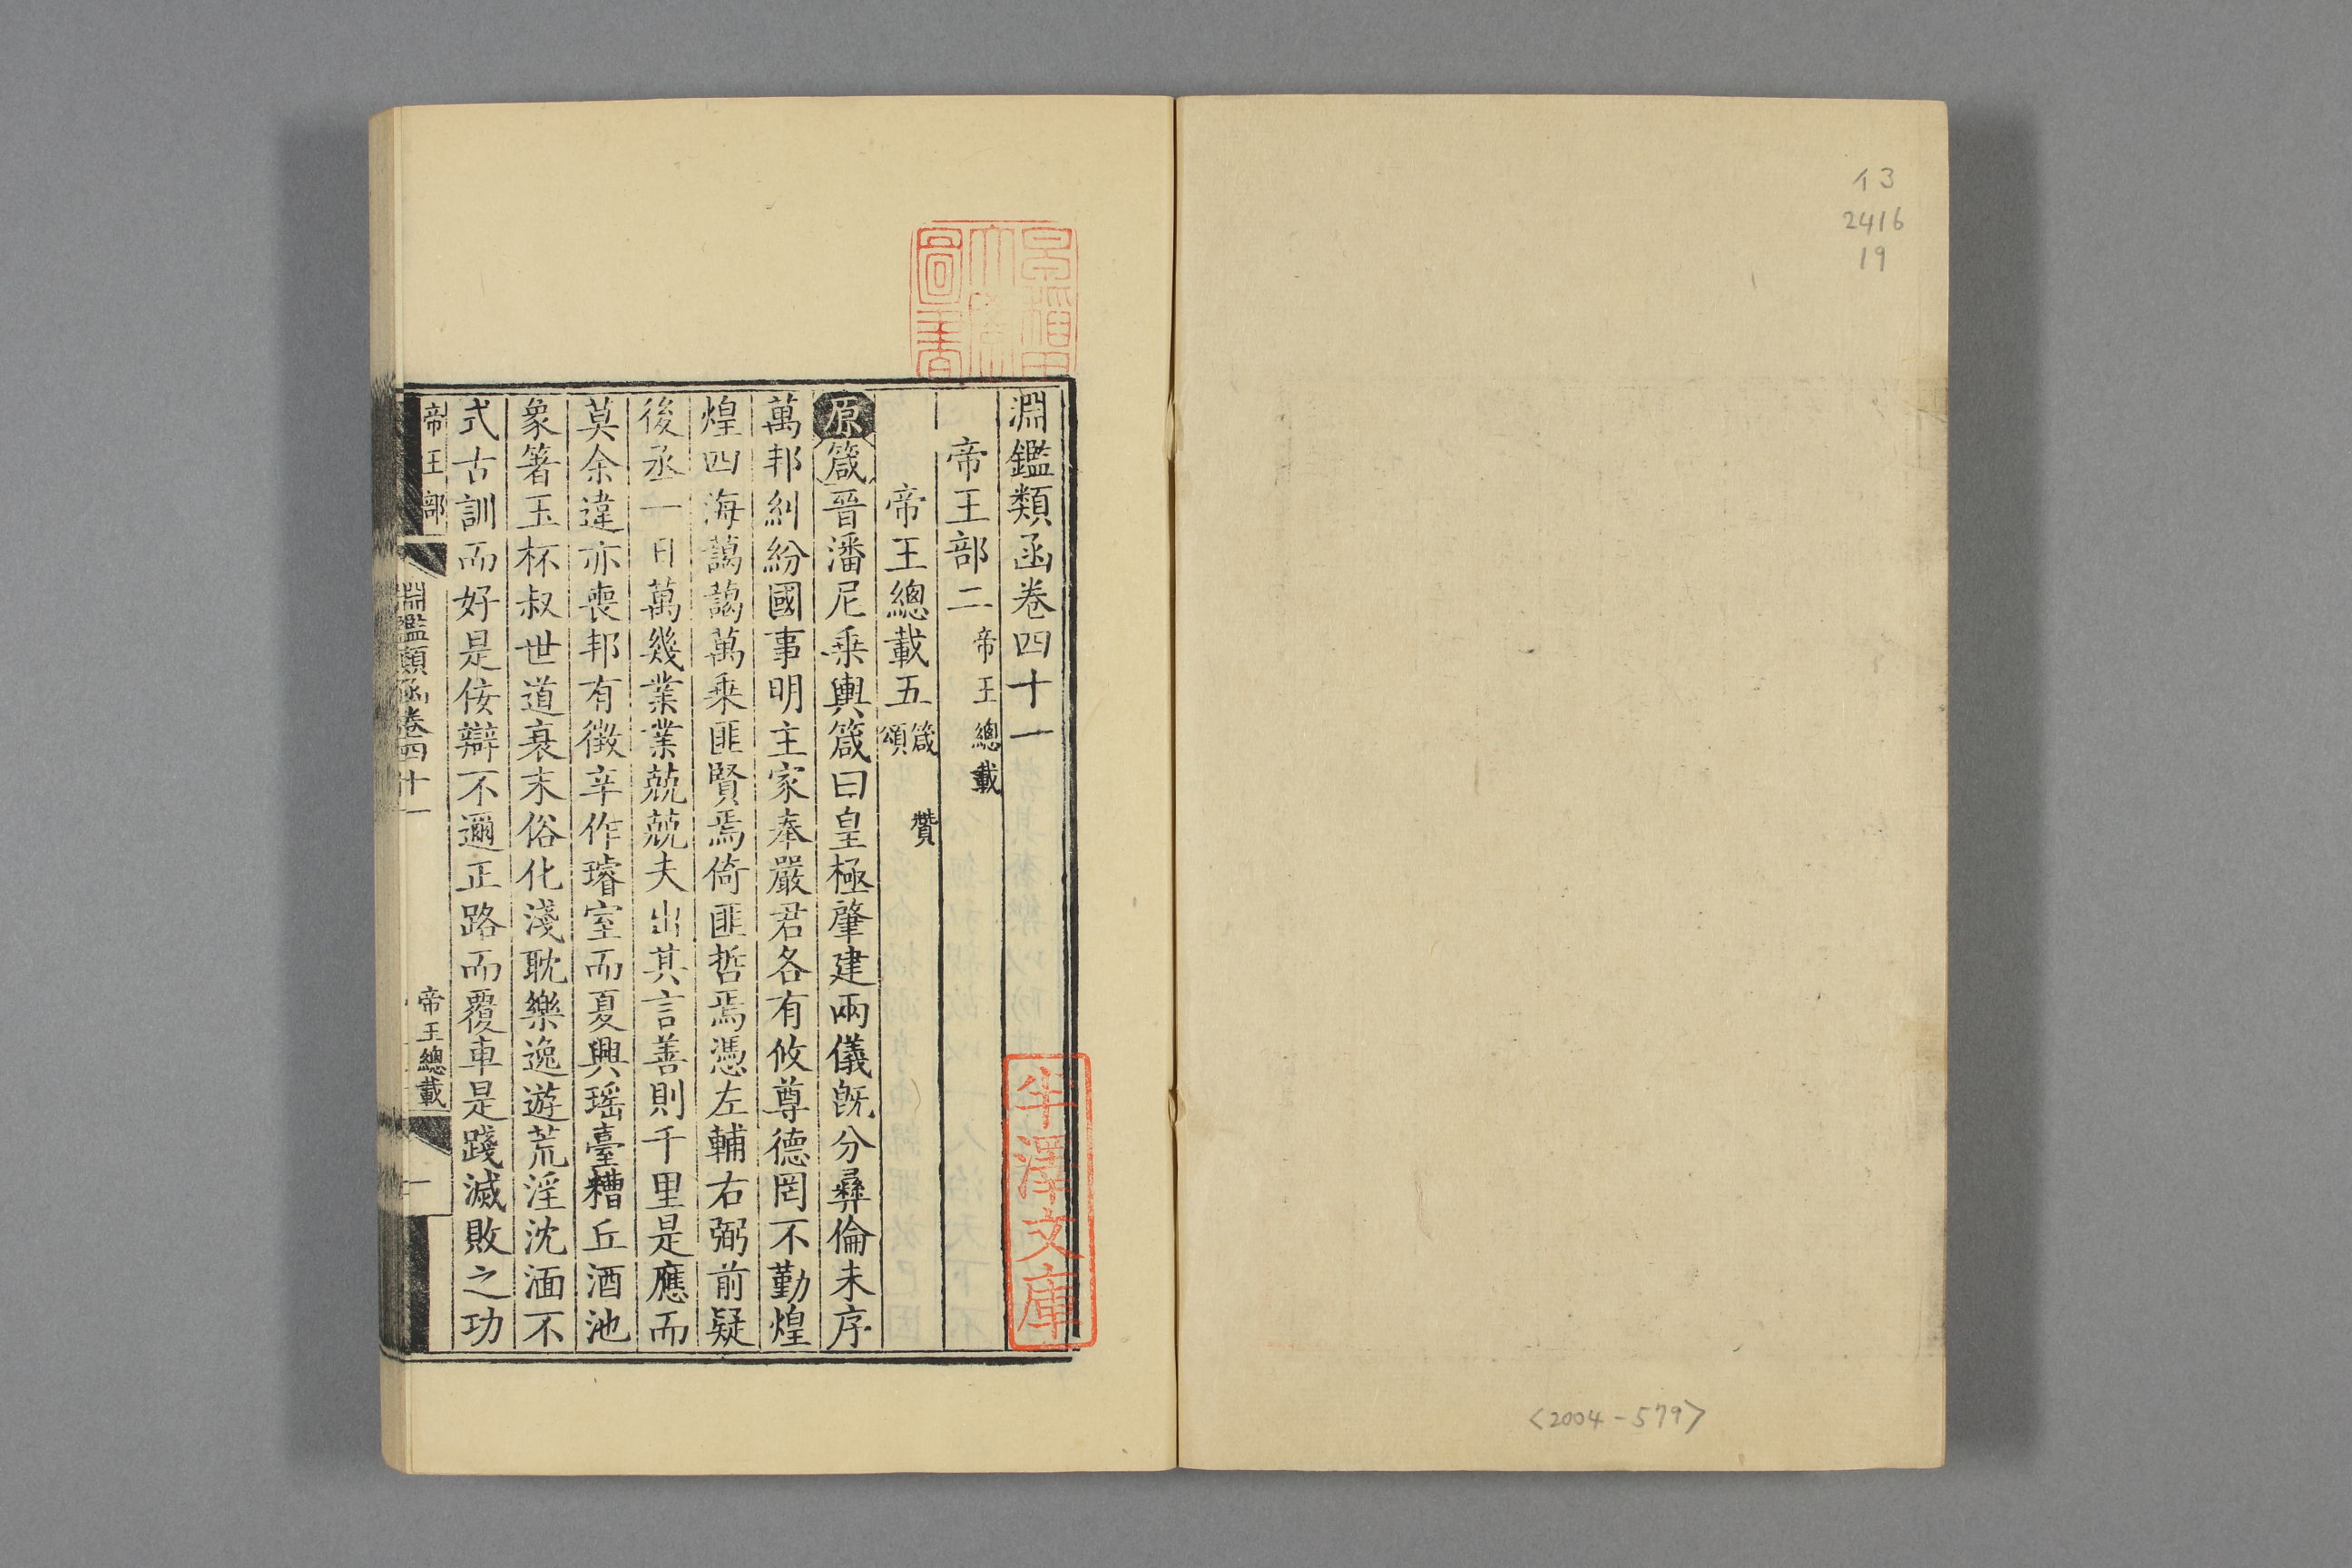 イ3
2416
19
<2004-579>
淵鑑類函卷四十一
帝王部二 帝王總載
帝王總載五 箴 贊 頌
原箴晉潘尼乗輿箴曰皇極肇建兩儀旣分彝倫未序
萬邦糾紛國事明主家奉嚴君各有攸尊德罔不勤煌
煌四海藹藹萬乗匪賢焉倚匪哲焉憑左輔右弼前疑
後丞一日萬幾業業兢兢夫出其言善則千里是應而
莫余違亦喪邦有徵辛作璿室而夏興瑶臺糟丘酒池
象箸玉杯叔世道衰末俗化淺耽樂逸遊荒淫沈湎不
式古訓而好是佞辯不遵正路而覆車是踐滅敗之功
帝王部
淵鑑類函卷四十一
帝王總載
一
早稲田大學圖書
半澤文庫